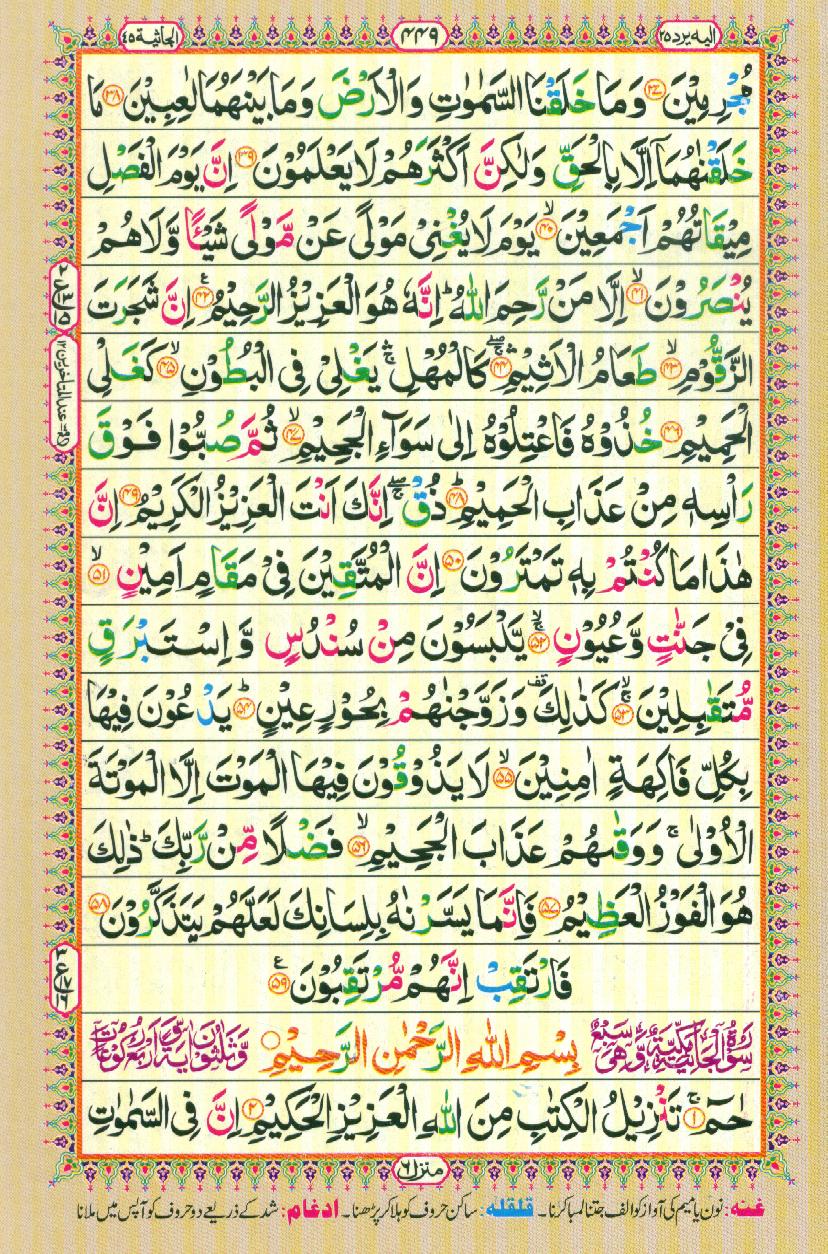 الیه یرد ۲۵
۴۴۹
الجاثیة ۴۵
مُجْرِمِیْنَ ﴿۳۷﴾ وَمَا خَلَقْنَا السَّمٰوٰتِ وَالْاَرْضَ وَمَا بَیْنَهُمَا لٰعِبِیْنَ ﴿۳۸﴾ مَا
خَلَقْنٰهُمَاۤ اِلَّا بِالْحَقِّ وَلٰكِنَّ اَكْثَرَهُمْ لَا یَعْلَمُوْنَ ﴿۳۹﴾ اِنَّ یَوْمَ الْفَصْلِ
مِیْقَاتُهُمْ اَجْمَعِیْنَ ﴿۴۰﴾ۙ یَوْمَ لَا یُغْنِیْ مَوْلًی عَنْ مَّوْلًی شَیْـًٔا وَّلَا هُمْ
یُنْصَرُوْنَ ﴿۴۱﴾ۙ اِلَّا مَنْ رَّحِمَ اللّٰهُ ؕ اِنَّهٗ هُوَ الْعَزِیْزُ الرَّحِیْمُ ﴿۴۲﴾ اِنَّ شَجَرَتَ
الزَّقُّوْمِ ﴿۴۳﴾ۙ طَعَامُ الْاَثِیْمِ ﴿۴۴﴾ كَالْمُهْلِ ۛۚ یَغْلِیْ فِی الْبُطُوْنِ ﴿۴۵﴾ۙ كَغَلْیِ
الْحَمِیْمِ ﴿۴۶﴾ خُذُوْهُ فَاعْتِلُوْهُ اِلٰی سَوَآءِ الْجَحِیْمِ ﴿۴۷﴾ۙ ثُمَّ صُبُّوْا فَوْقَ
رَاْسِهٖ مِنْ عَذَابِ الْحَمِیْمِ ﴿۴۸﴾ؕ ذُقْ ۚۙ اِنَّكَ اَنْتَ الْعَزِیْزُ الْكَرِیْمُ ﴿۴۹﴾ اِنَّ
هٰذَا مَا كُنْتُمْ بِهٖ تَمْتَرُوْنَ ﴿۵۰﴾ اِنَّ الْمُتَّقِیْنَ فِیْ مَقَامٍ اَمِیْنٍ ﴿۵۱﴾ۙ
فِیْ جَنّٰتٍ وَّعُیُوْنٍ ﴿۵۲﴾ۚۙ یَّلْبَسُوْنَ مِنْ سُنْدُسٍ وَّاِسْتَبْرَقٍ
مُّتَقٰبِلِیْنَ ﴿۵۳﴾ۚۙ كَذٰلِكَ ۫ وَزَوَّجْنٰهُمْ بِحُوْرٍ عِیْنٍ ﴿۵۴﴾ؕ یَدْعُوْنَ فِیْهَا
بِكُلِّ فَاكِهَةٍ اٰمِنِیْنَ ﴿۵۵﴾ۙ لَا یَذُوْقُوْنَ فِیْهَا الْمَوْتَ اِلَّا الْمَوْتَةَ
الْاُوْلٰی ۚ وَوَقٰىهُمْ عَذَابَ الْجَحِیْمِ ﴿۵۶﴾ۙ فَضْلًا مِّنْ رَّبِّكَ ؕ ذٰلِكَ
هُوَ الْفَوْزُ الْعَظِیْمُ ﴿۵۷﴾ فَاِنَّمَا یَسَّرْنٰهُ بِلِسَانِكَ لَعَلَّهُمْ یَتَذَكَّرُوْنَ ﴿۵۸﴾
فَارْتَقِبْ اِنَّهُمْ مُّرْتَقِبُوْنَ ﴿۵۹﴾
سُوْرَةُ الْجَاثِیَةِ مَكِّیَّةٌ وَّهِیَ سَبْعٌ
بِسْمِ اللّٰهِ الرَّحْمٰنِ الرَّحِیْمِ
وَّثَلٰثُوْنَ اٰیَةً وَّاَرْبَعُ رُكُوْعَاتٍ
حٰمٓ ﴿۱﴾ۚ تَنْزِیْلُ الْكِتٰبِ مِنَ اللّٰهِ الْعَزِیْزِ الْحَكِیْمِ ﴿۲﴾ اِنَّ فِی السَّمٰوٰتِ
منزل ۶
غنه: نون یا میم کی آواز کو الف جتنا لمبا کرنا۔ قلقله: ساکن حروف کو ہلا کر پڑھنا۔ ادغام: شد کے ذریعے دو حروف کو آپس میں ملانا